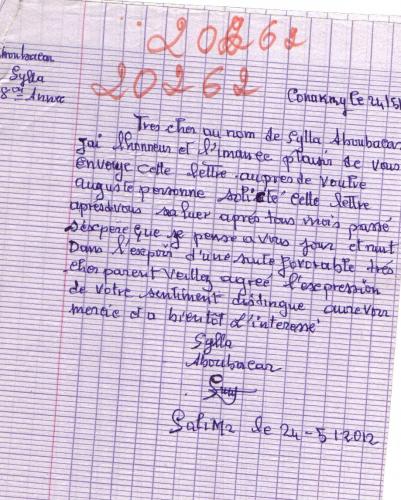 20262
20262
Aboubacar
Sylla
8em Année
Conakry le 24/5/
Tres cher au nom de Sylla Aboubacar
J'ai lhonneur et l'imance plaisir de vous
envoyé cette lettre aupres de voutre
auguste personne solicité cette lettre
aprésvous saluer aprés tous mois passé
J'éspère que je pense a vous jour et nuit
Dans l'espoir d'une suite favorable trés
cher parent veillez agreé l'esxpression
de votre sentiment distingue aurevoir
mercie et a bientôt L'interessé
Sylla
Aboubacar
le 24-5/2012